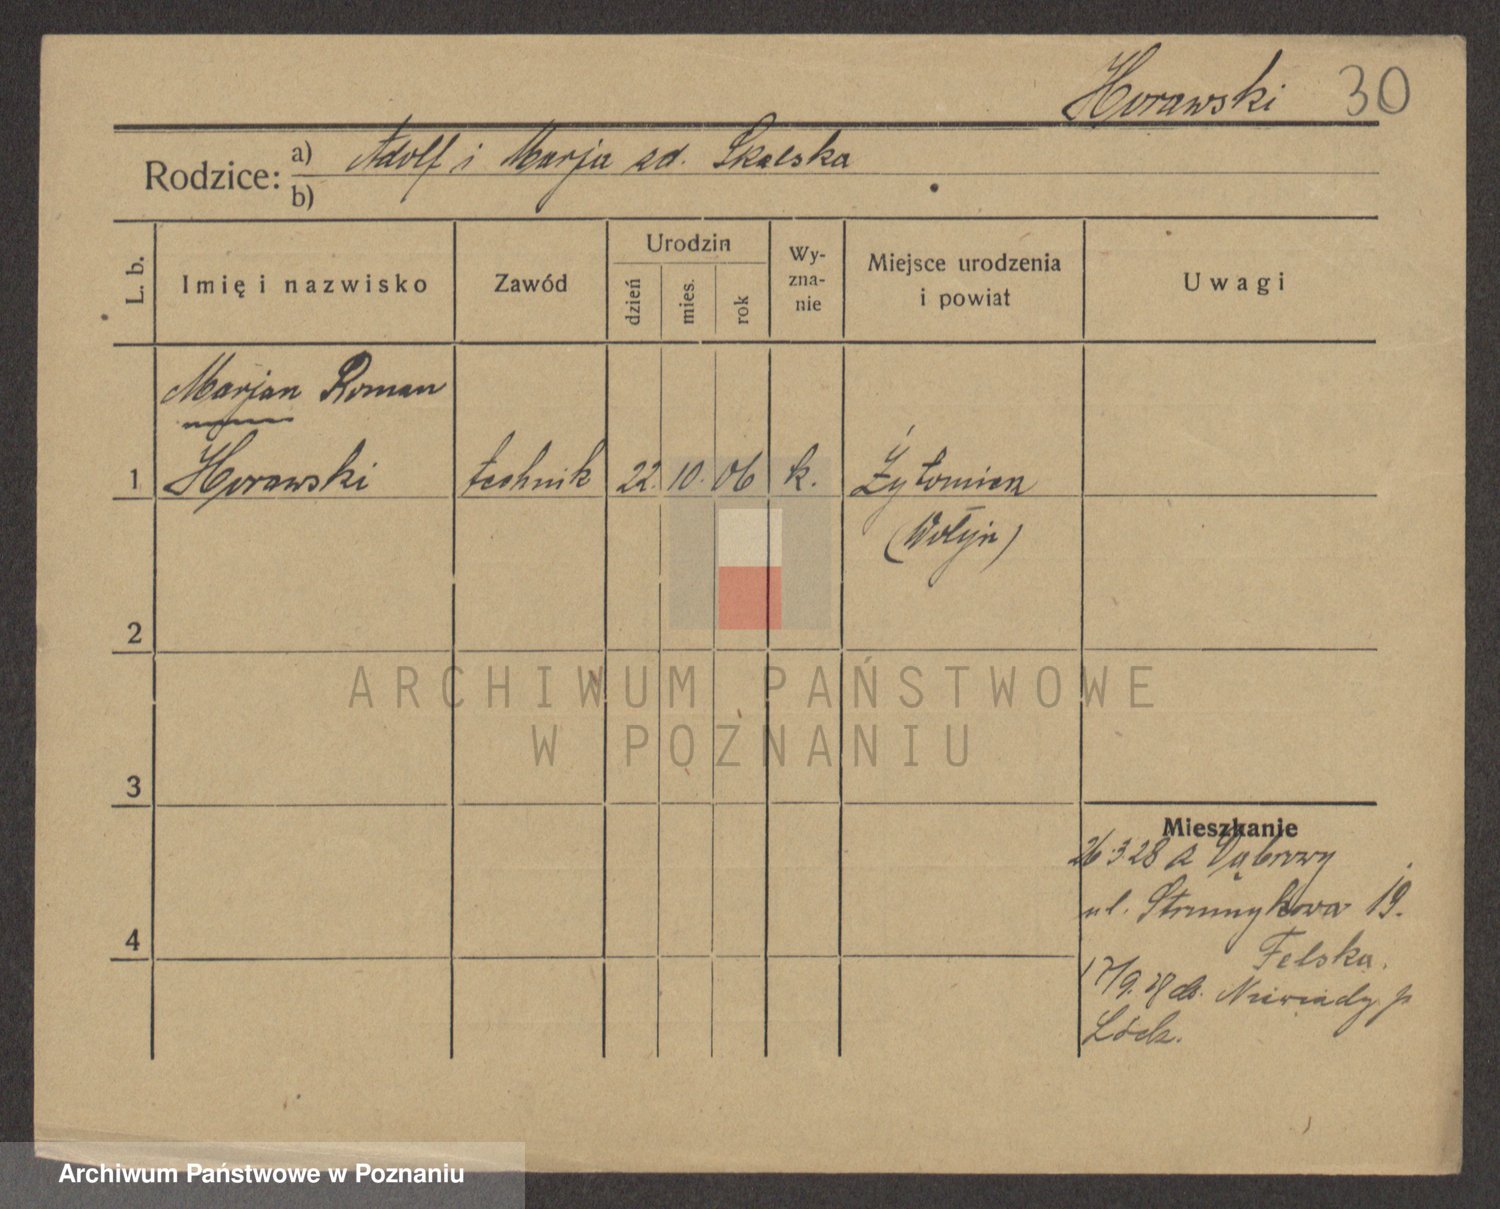 Horawski 30
Rodzice:
a) Adolf i Marja zd. Skalska
b)
L. b.
Imię i nazwisko
Zawód
Urodzin
dzień
mies.
rok
Wy-
zna-
nie
Miejsce urodzenia
i powiat
Uwagi
Marjan Roman
1 Horawski technik 22. 10. 06 k. Żytomierz
(Wołyń)
2
3
4
Mieszkanie
26.3.28 z Dąbrowy
ul. Strumykowa 19.
Felska.
17/9.28 do Niewiady p
Łódz.
ARCHIWUM PAŃSTWOWE
W POZNANIU
Archiwum Państwowe w Poznaniu